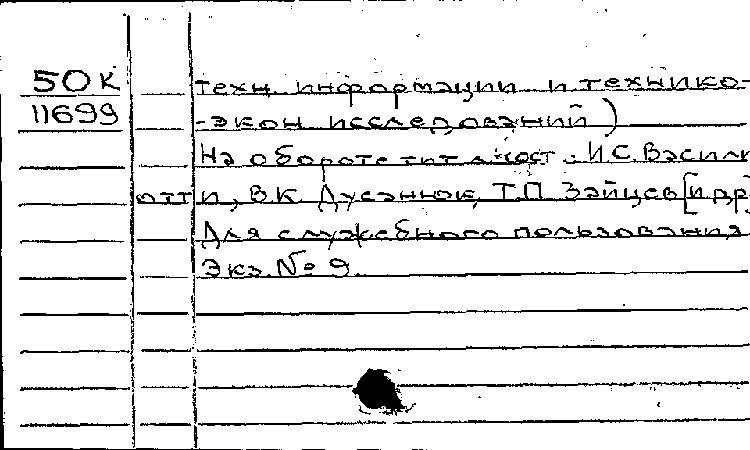 50К техн. информации и технико-
11699 -экон. исследований)
На обороте тит. л. сост.: И.С. Васили
и, В.К. Дусанюк, Т.П. Зайцев [и др
Для служебного пользования
Экз. № 9.